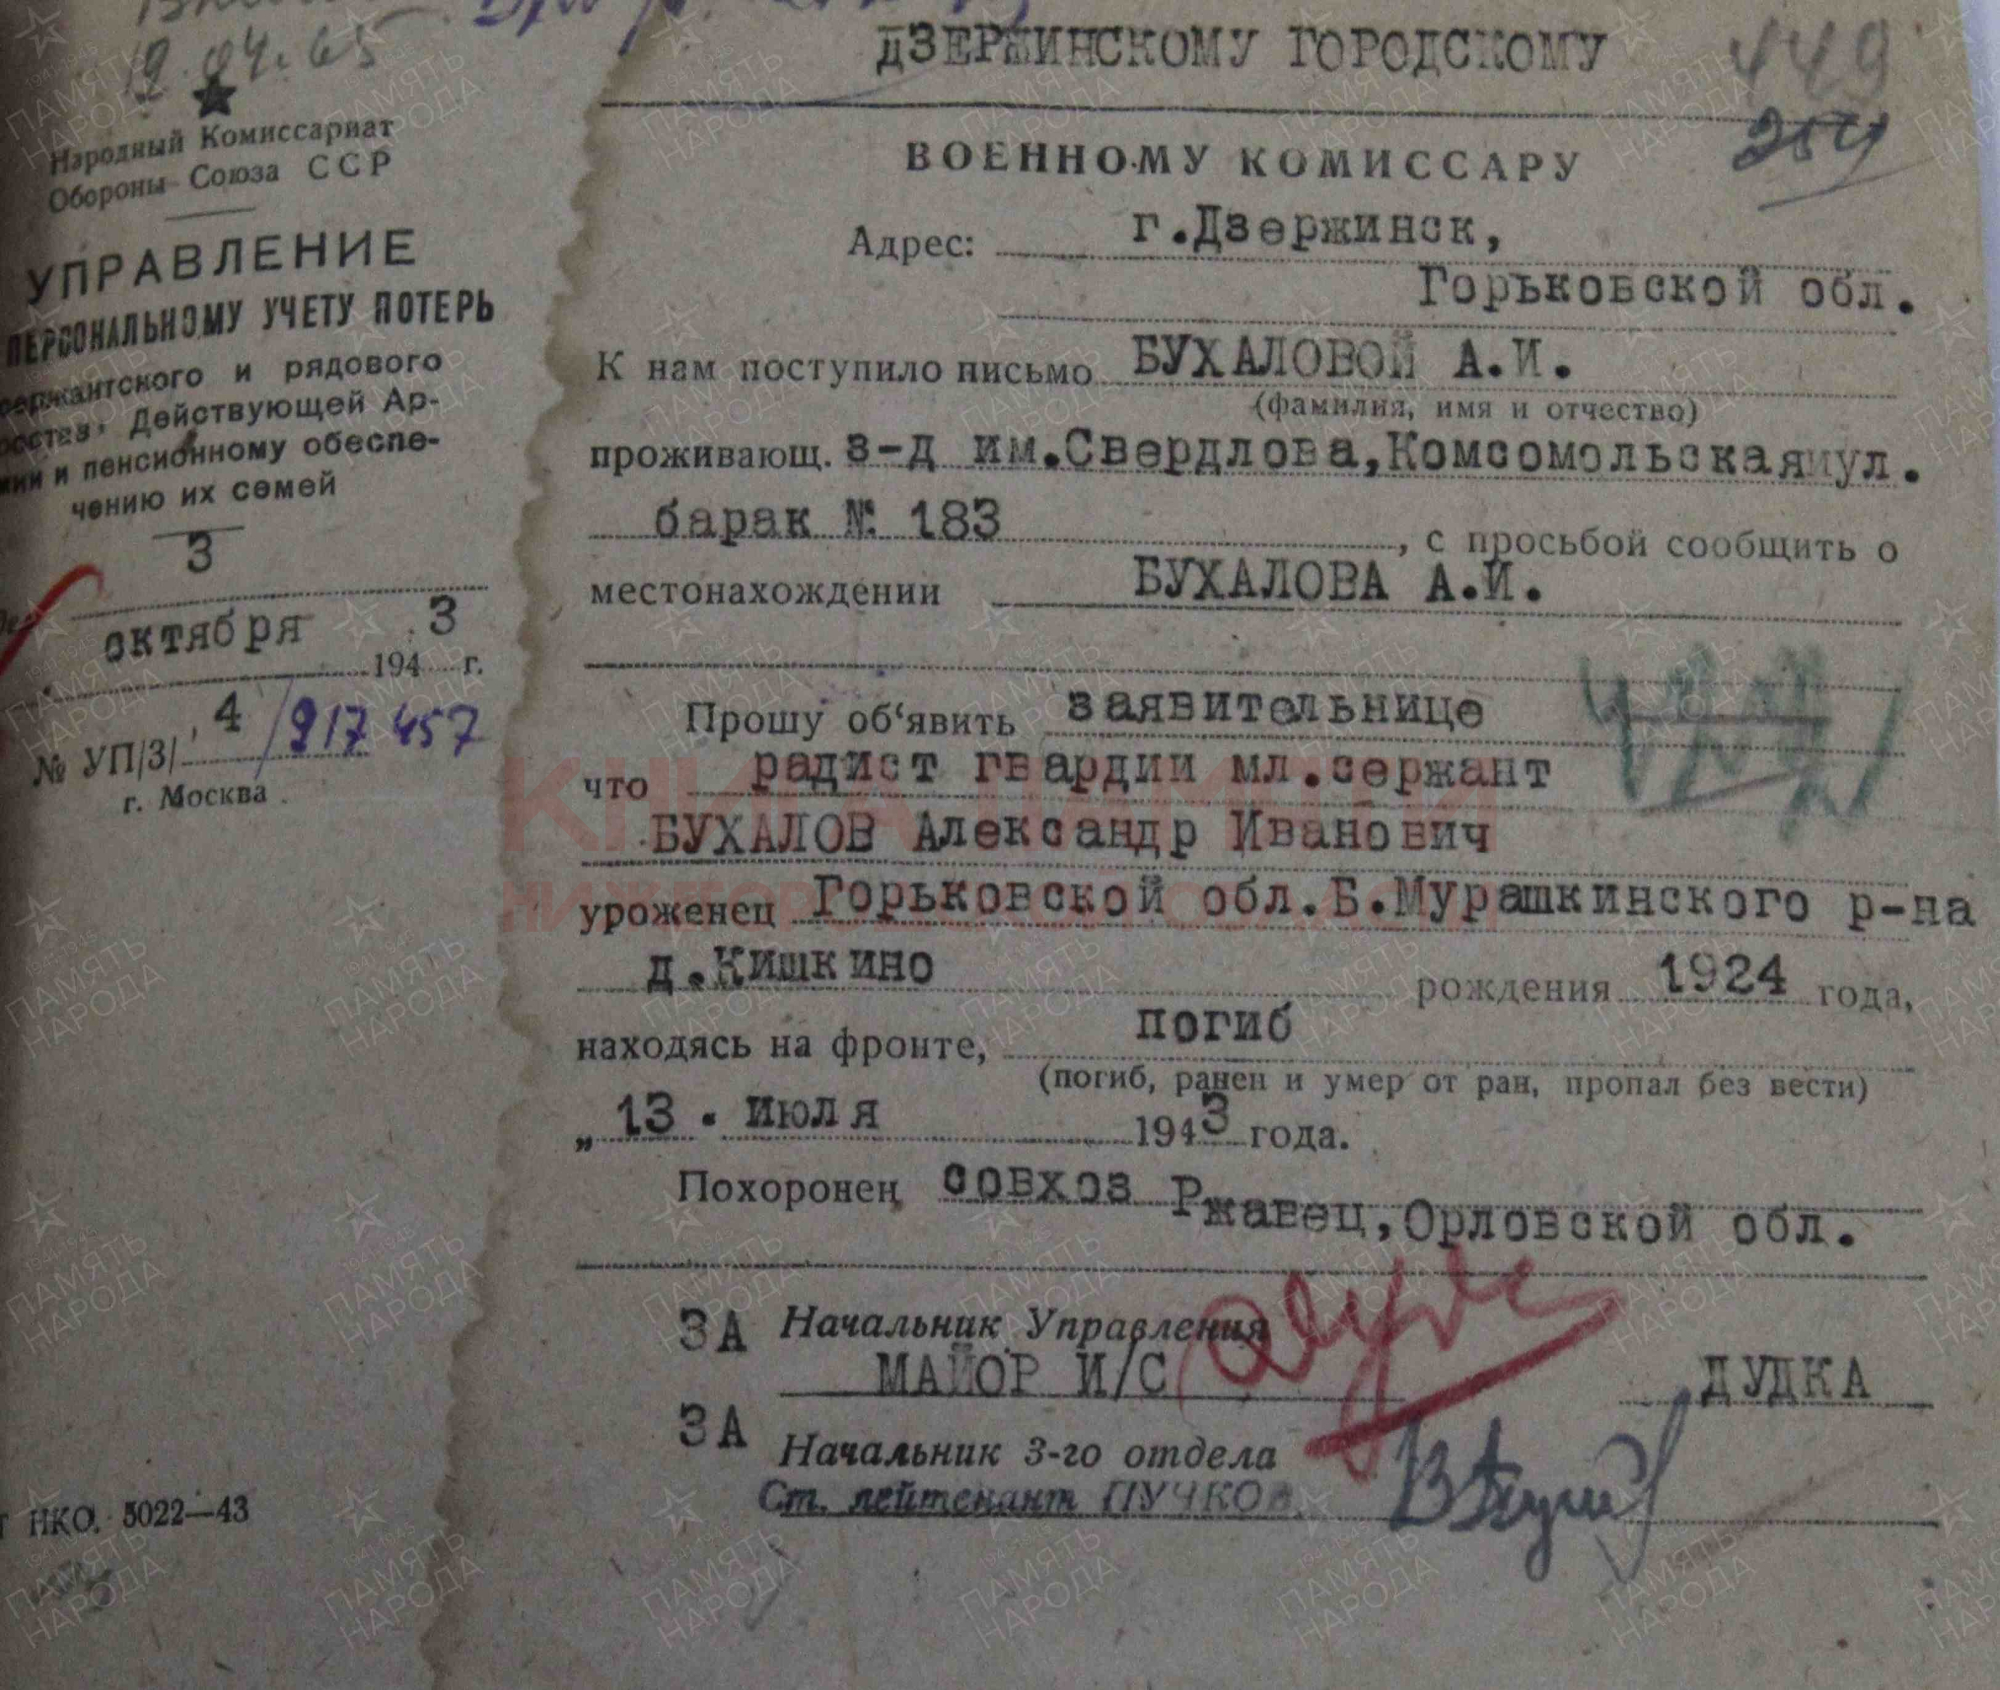 19.04.65
Народный Комиссариат
Обороны Союза ССР
УПРАВЛЕНИЕ
ПЕРСОНАЛЬНОМУ УЧЕТУ ПОТЕРЬ
сержантского и рядового
состава Действующей Ар-
мии и пенсионному обеспе-
чению их семей
3
октября 3
194 г.
№ УП/3/ 4/917457
г. Москва
НКО. 5022—43
ДЗЕРЖИНСКОМУ ГОРОДСКОМУ
449
ВОЕННОМУ КОМИССАРУ
254
Адрес: г.Дзержинск,
Горьковской обл.
К нам поступило письмо БУХАЛОВОЙ А.И.
(фамилия, имя и отчество)
проживающ. з-д им.Свердлова,Комсомольская ул.
барак № 183 , с просьбой сообщить о
местонахождении БУХАЛОВА А.И.
Прошу об‘явить заявительнице
что радист гвардии мл.сержант
БУХАЛОВ Александр Иванович
уроженец Горьковской обл.Б.Мурашкинского р-на
д.Кишкино рождения 1924 года,
находясь на фронте, погиб
(погиб, ранен и умер от ран, пропал без вести)
„ 13 . июля 1943 года.
Похоронен совхоз Ржавец,Орловской обл.
ЗА Начальник Управления
МАЙОР И/С ДУДКА
ЗА Начальник 3-го отдела
Ст. лейтенант ПУЧКОВ
КНИГА ПАМЯТИ
НИЖЕГОРОДСКОЙ ОБЛАСТИ
ПАМЯТЬ НАРОДА